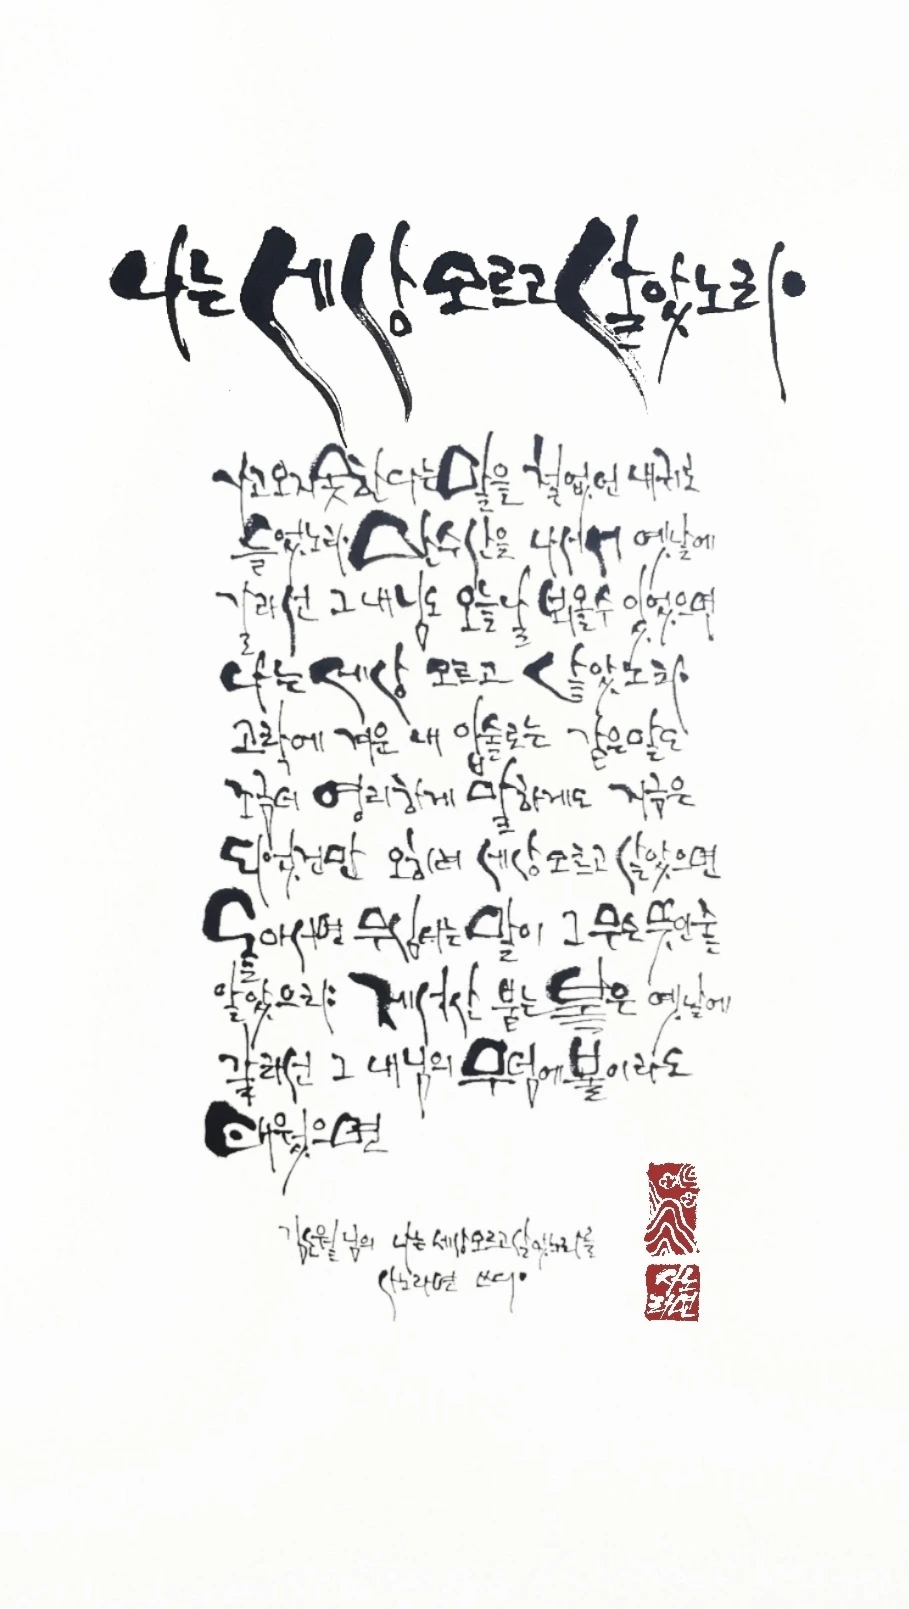 나는 세상 모르고 살았노라.
가고오지못한다는 말을 철없던 내귀로
들었노라. 만수산을 나서서 옛날에
갈라선 그 내님도 오늘날 뵈올수 있었으면
나는 세상 모르고 살았노라.
고락에 겨운 내 입술로는 같은말도
조금더 영리하게 말하게도 지금은
되었건만 오히려 세상모르고 살았으면
돌아서면 무심타는 말이 그 무슨 뜻인줄
알았으랴: 제석산 붙는 불은 옛날에
갈라선 그 내님의 무덤에 불이라도
태웠으면
김소월님의 나는 세상모르고살았노라를
사노라면 쓰다.
사노
라면